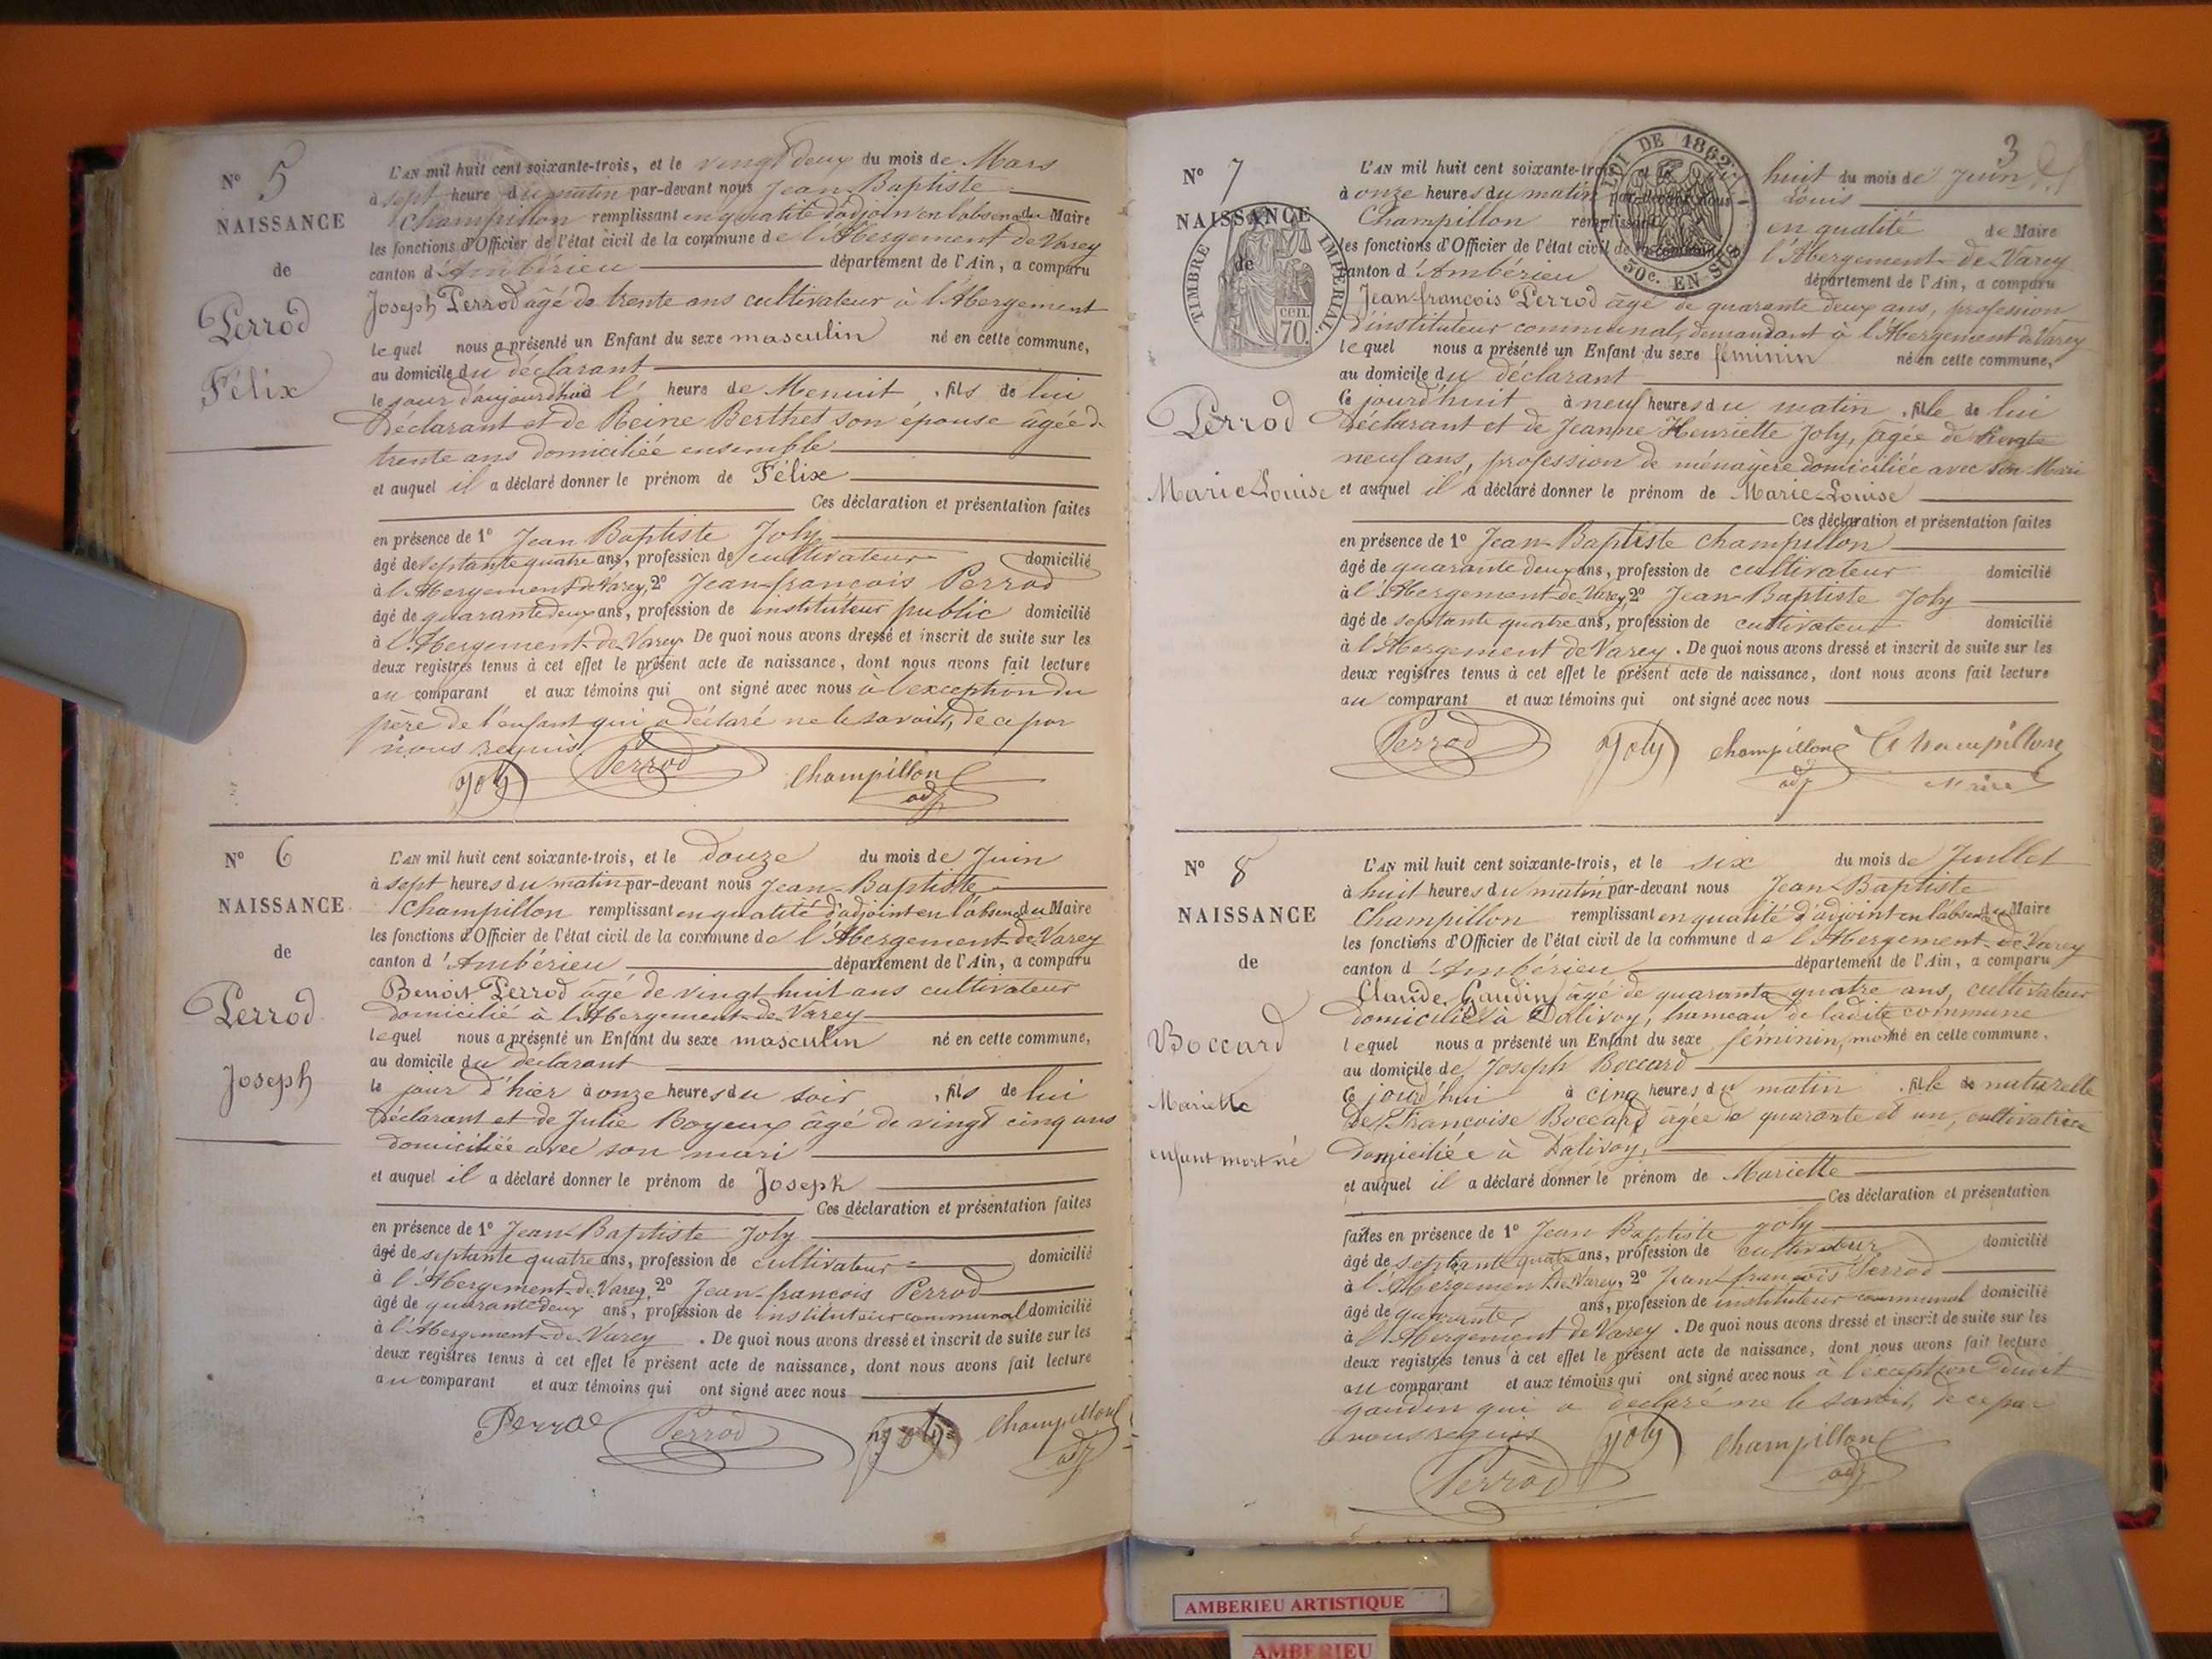 N° 5
NAISSANCE
de
Perrod
Félix
L'AN mil huit cent soixante-trois, et le vingt deux du mois de Mars
à sept heure du matin par-devant nous Jean-Baptiste
Champillon remplissant en qualité d'adjoin en l'absence du Maire
les fonctions d'Officier de l'état civil de la commune de l'Abergement de Varey
canton d'Ambérieu département de l'Ain, a comparu
Joseph Perrod âgé de trente ans cultivateur à l'Abergement
lequel nous a présenté un Enfant du sexe masculin né en cette commune,
au domicile du déclarant
le jour d'aujourd'hui à l' heure de Menuit, fils de lui
Déclarant et de Reine Berthet son épouse âgée de
trente ans domiciliée ensemble
et auquel il a déclaré donner le prénom de Félix
Ces déclaration et présentation faites
en présence de 1° Jean Baptiste Joly
âgé de septante quatre ans, profession de cultivateur domicilié
à l'Abergement de Varey, 2° Jean-françois Perrod
âgé de quarante deux ans, profession de instituteur public domicilié
à l'Abergement-de-Varey De quoi nous avons dressé et inscrit de suite sur les
deux registres tenus à cet effet le présent acte de naissance, dont nous avons fait lecture
au comparant et aux témoins qui ont signé avec nous à l'exception du
père de l'enfant qui a déclaré ne le savoir, de ce par
nous requis.
Joly Perrod Champillon
adj
N° 6
NAISSANCE
de
Perrod
Joseph
L'AN mil huit cent soixante-trois, et le douze du mois de Juin
à sept heures du matin par-devant nous Jean-Baptiste
Champillon remplissant en qualité d'adjoint en l'absence du Maire
les fonctions d'Officier de l'état civil de la commune de l'Abergement-de-Varey
canton d'Ambérieu département de l'Ain, a comparu
Benoit Perrod âgé de vingt huit ans cultivateur
domicilié à l'Abergement-de-Varey
lequel nous a présenté un Enfant du sexe masculin né en cette commune,
au domicile du déclarant
le jour d'hier à onze heures du soir, fils de lui
Déclarant et de Julie Boyeux âgé de vingt cinq ans
domiciliée avec son mari
et auquel il a déclaré donner le prénom de Joseph
Ces déclaration et présentation faites
en présence de 1° Jean-Baptiste Joly
âgé de septante quatre ans, profession de cultivateur domicilié
à l'Abergement-de-Varey, 2° Jean-francois Perrod
âgé de quarante deux ans, profession de instituteur communal domicilié
à l'Abergement-de-Varey. De quoi nous avons dressé et inscrit de suite sur les
deux registres tenus à cet effet le présent acte de naissance, dont nous avons fait lecture
au comparant et aux témoins qui ont signé avec nous
Perrod Perrod Joly Champillon
adj
3
N° 7
NAISSANCE
de
TIMBRE IMPÉRIAL
70 cen.
LOI DE 1862
50c. EN SUS
Perrod
Marie-Louise
L'AN mil huit cent soixante-trois, et le huit du mois de Juin
à onze heures du matin par-devant nous Louis
Champillon remplissant en qualité de Maire
les fonctions d'Officier de l'état civil de la commune de l'Abergement-de-Varey
canton d'Ambérieu département de l'Ain, a comparu
Jean-françois Perrod âgé de quarante deux ans, profession
d'instituteur communal, demandant à l'Abergement de Varey
lequel nous a présenté un Enfant du sexe féminin né en cette commune,
au domicile du déclarant
Ce jourd'huit à neuf heures du matin, fille de lui
Déclarant et de Jeanne Henriette Joly, âgée de
neuf ans, profession de ménagère domiciliée avec son Mari
et auquel il a déclaré donner le prénom de Marie-Louise
Ces déclaration et présentation faites
en présence de 1° Jean-Baptiste Champillon
âgé de quarante deux ans, profession de cultivateur domicilié
à l'Abergement-de-Varey, 2° Jean-Baptiste Joly
âgé de septante quatre ans, profession de cultivateur domicilié
à l'Abergement de Varey. De quoi nous avons dressé et inscrit de suite sur les
deux registres tenus à cet effet le présent acte de naissance, dont nous avons fait lecture
au comparant et aux témoins qui ont signé avec nous
Perrod Joly Champillon Champillon
adj Maire
N° 8
NAISSANCE
de
Boccard
Mariette
enfant mort né
L'AN mil huit cent soixante-trois, et le six du mois de Juillet
à huit heures du matin par-devant nous Jean-Baptiste
Champillon remplissant en qualité d'adjoint en l'absence du Maire
les fonctions d'Officier de l'état civil de la commune de l'Abergement-de-Varey
canton d'Ambérieu département de l'Ain, a comparu
Claude Gaudin âgé de quarante quatre ans, cultivateur
domicilié à Dalivoy, hameau de ladite commune
lequel nous a présenté un Enfant du sexe féminin, mort né en cette commune,
au domicile de Joseph Boccard
Ce jourd'hui à cinq heures du matin, fille de naturelle
de Françoise Boccard âgée de quarante et un, cultivatrice
Domiciliée à Dalivoy,
et auquel il a déclaré donner le prénom de Mariette
Ces déclaration et présentation
faites en présence de 1° Jean Baptiste Joly
âgé de septante quatre ans, profession de cultivateur domicilié
à l'Abergement de Varey, 2° Jean-françois Perrod
âgé de quarante, ans, profession de instituteur communal domicilié
à l'Abergement de Varey. De quoi nous avons dressé et inscrit de suite sur les
deux registres tenus à cet effet le présent acte de naissance, dont nous avons fait lecture
au comparant et aux témoins qui ont signé avec nous à l'exception dudit
Gaudin qui a déclaré ne le savoir, de ce par
nous requis Joly Champillon
Perrod adj
AMBERIEU ARTISTIQUE
AMBERIEU